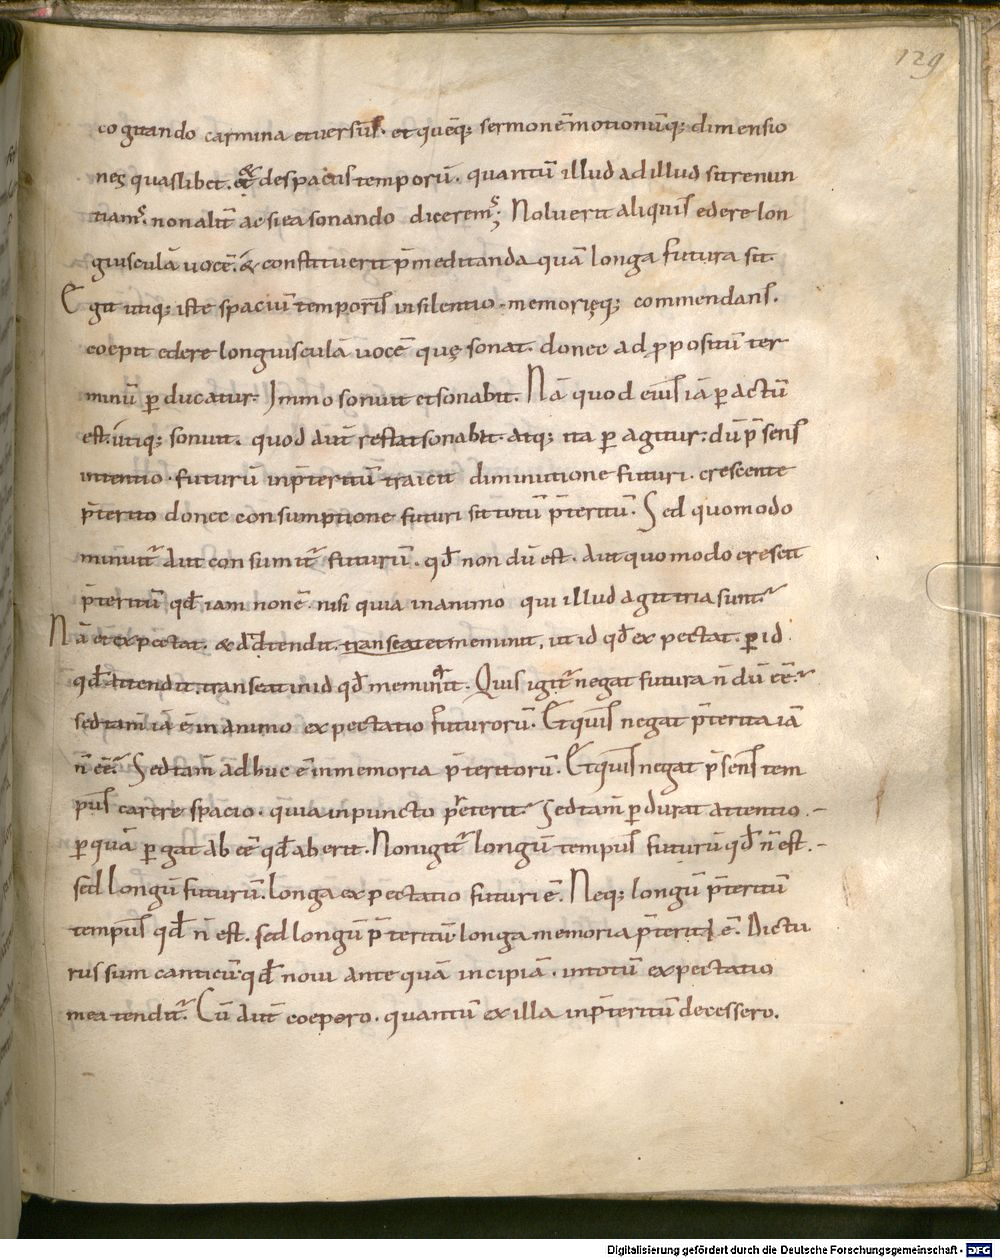 129
cogitando carmina et versus. et quēq; sermonē motionūq; dimensio
nes quaslibet. et de spaciis temporū. quantū illud ad illud sit renun
tiam9. non alit̄ ac si ea sonando dicerem9; Voluerit aliquis edere lon
giusculā vocē. & constituerit p̄meditanda quā longa futura sit.
Egit utiq; iste spaciū temporis in silentio. memorięq; commendans.
coepit edere longiusculā vocē quę sonat. donec ad ppositū ter
minū perducatur. Immo sonuit et sonabit. Nā quod eius iā peractū
est. utiq; sonuit. quod aut̄ restat sonabit. atq; ita peragitur. dū p̄sens
intentio. futurū in p̄teritū traicit diminutione futuri. crescente
p̄terito donec consumptione futuri sit totū p̄teritū. Sed quomodo
minuit̄ aut consumit̄ futurū. qd̄ nondū est. Aut quomodo crescit
p̄teritū qd̄ iam non ē. nisi quia in animo qui illud agit tria sunt.
Nā et expectat. & adtendit. transeat et meminit, ut id qd̄ expectat. per id
qd̄ attendit. transeat in id qd̄ meminerit. Quis igit̄ negat futura n̄dū ēē.
sed tam̄ iā ē in animo expectatio futurorū. Et quis negat p̄terita iā
n̄ ēē. Sed tam̄ adhuc ē in memoria p̄teritorū. Et quis negat p̄sens tem
pus carere spacio. quia in puncto p̄eterit. Sed tam̄ perdurat attentio.
per quā pergat ab ēē qd̄ aberit. Non igit̄ longū tempus futurū qd̄ n̄ est.
sed longū futurū. longa expectatio futuri ē. Neq; longū p̄teritū
tempus qd̄ n̄ est. sed longū p̄teritū longa memoria p̄teriti ē. Dictu
rus sum canticū qd̄ novi ante quā incipiā. in totū expectatio
mea tendit̄. Cū aut̄ coepero. quantū ex illa in p̄teritū decessero.
Digitalisierung gefördert durch die Deutsche Forschungsgemeinschaft - DFG